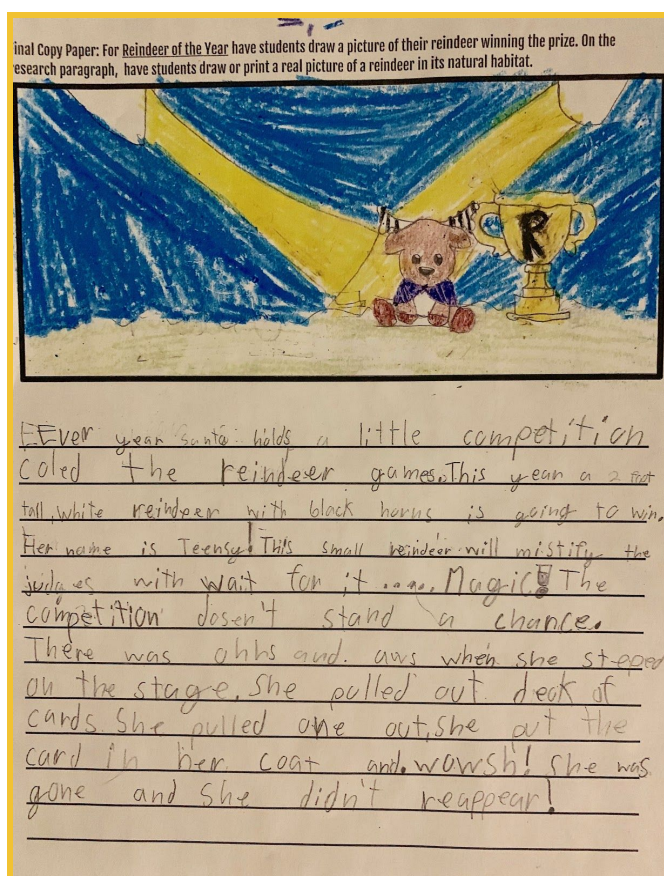 inal Copy Paper: For Reindeer of the Year have students draw a picture of their reindeer winning the prize. On the
esearch paragraph, have students draw or print a real picture of a reindeer in its natural habitat.
R
EEver year santa holds a little competition
Coled the reindeer games. This year a 2 foot
tall, white reindeer with black horns is going to win.
Her name is Teensy! This small reindeer will mistify the
judges with wait for it ..... Magic! The
competition dosen't stand a chance.
There was ohhs and. aws when she steped
on the stage. She pulled out deck of
cards. She pulled one out, she put the
card in her coat and. wowsh! She was
gone and she didn't reappear!